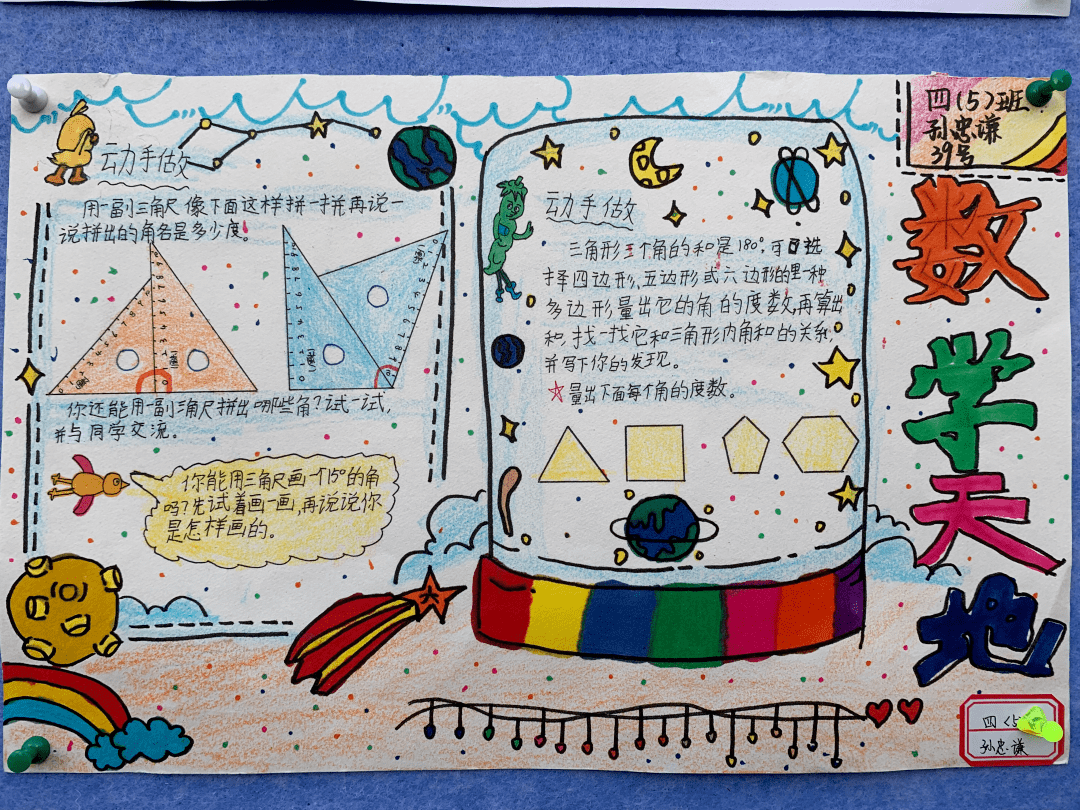 动手做
用一副三角尺像下面这样拼一拼,再说一
说拼出的角各是多少度。
你还能用一副三角尺拼出哪些角?试一试,
并与同学交流。
你能用三角尺画一个15°的角
吗?先试着画一画,再说说你
是怎样画的。
动手做
三角形三个角的和是180°,可以选
择四边形,五边形或六边形的里一种
多边形量出它的角的度数,再算出
和,找一找它和三角形内角和的关系,
并写下你的发现。
☆量出下面每个角的度数。
四(5)班
孙忠谦
39号
数
学
天
地
四(5
孙忠谦